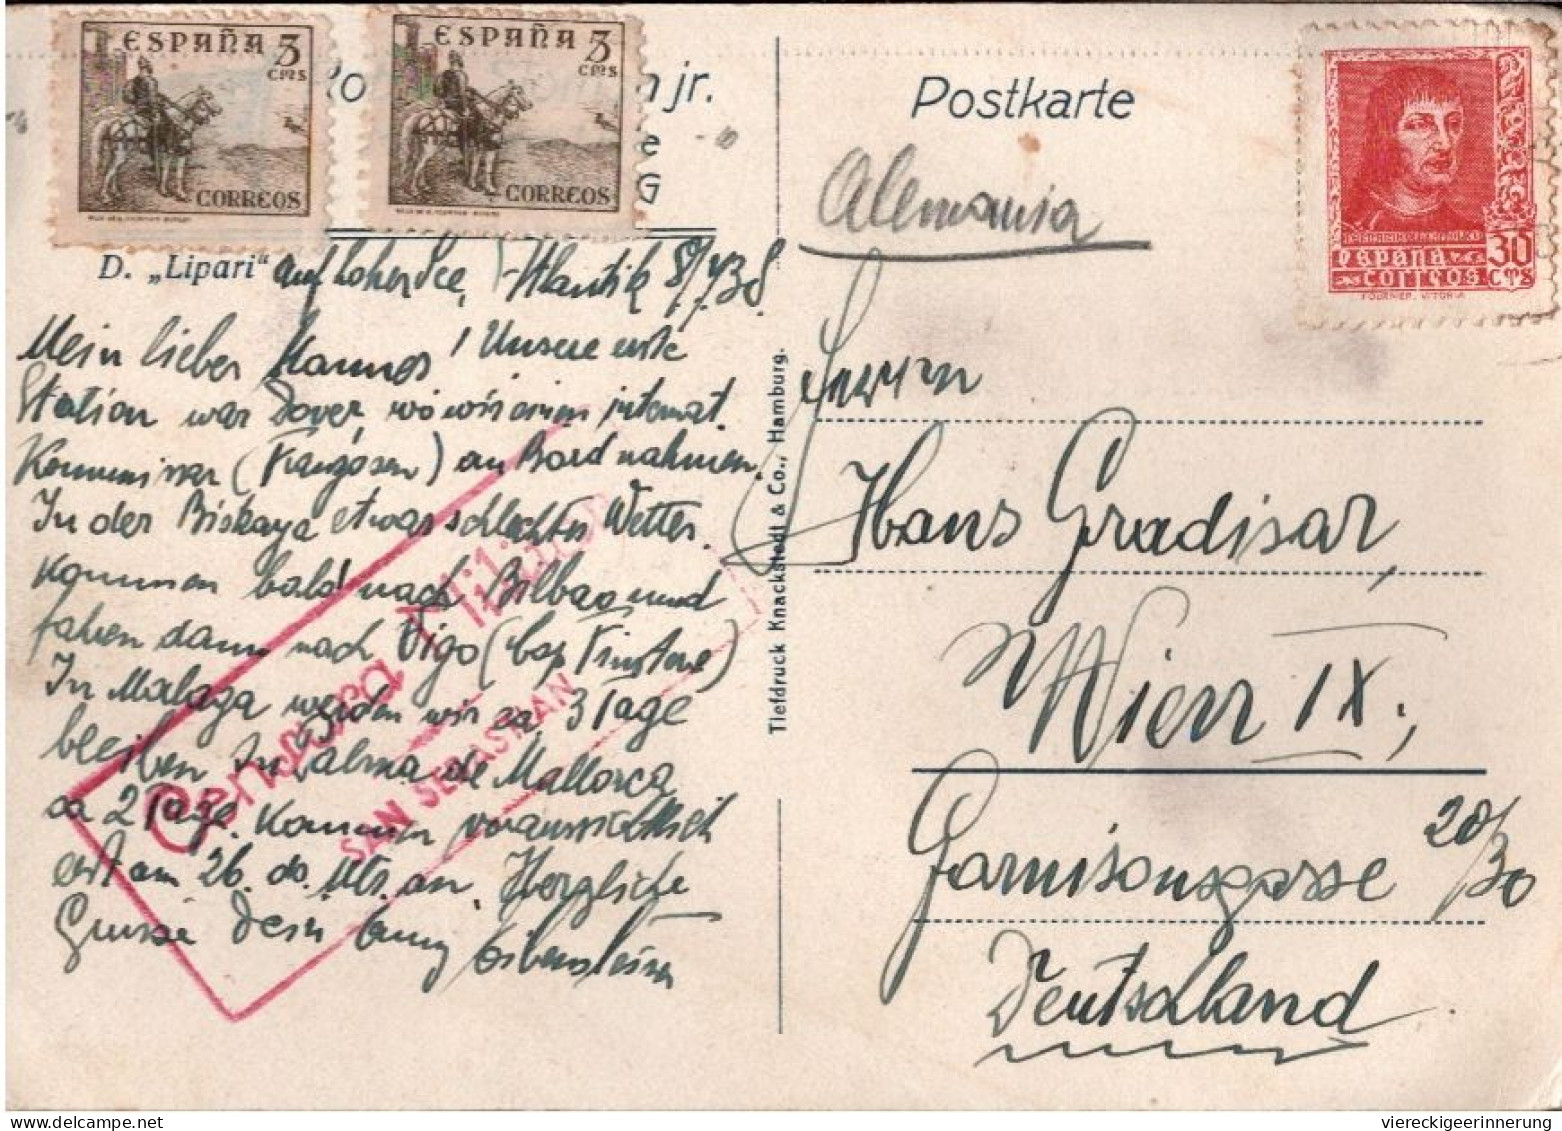 ESPAÑA 3
CTMS
CORREOS
ESPAÑA 3
CTMS
CORREOS
jr.
e
G
D. „Lipari“ auf hoher See, Atlantik 8/7 38
Mein lieber Hannes! Unsere erste
Station war Dover, wo wir einen internat.
Kommissar (Franzosen) an Bord nahmen.
In der Biskaya etwas schlechtes Wetter.
Kommen bald nach Bilbao und
fahren dann nach Vigo (Cap Finisterre)
In Malaga werden wir ca 3 Tage
bleiben In Palma de Mallorca
ca 2 Tage. Kommen voraussichtlich
erst am 26. ds. Mts. an. Herzliche
Grüsse Dein
Censura Militar
SAN SEBASTIAN
Tiefdruck Knackstedt & Co., Hamburg.
Postkarte
Alemania
30
ESPAÑA CTS
CORREOS
FOURNIER. VITORIA
Herrn
Hans Gradisar,
Wien IX.,
Garnisongasse 20/30
Deutschland
viereckigeerinnerung